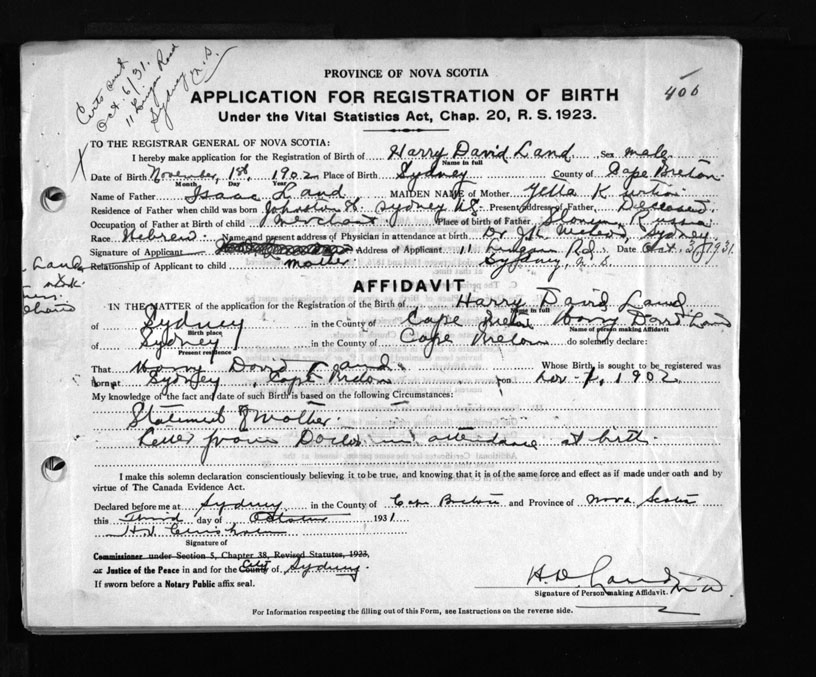 Certs sent
Oct. 6/31.
11 Road
Sydney N.S.
400
PROVINCE OF NOVA SCOTIA
APPLICATION FOR REGISTRATION OF BIRTH
Under the Vital Statistics Act, Chap. 20, R. S. 1923.
X
TO THE REGISTRAR GENERAL OF NOVA SCOTIA:
I hereby make application for the Registration of Birth of Harry David Land Sex male
Name in full
Date of Birth November, 1st, 1902 Place of Birth Sydney County of Cape Breton
Month Day Year
Name of Father Isaac Land MAIDEN NAME of Mother Yetta K
Residence of Father when child was born Johnston St. Sydney N.S. Present address of Father Deceased
Occupation of Father at Birth of child Merchant Place of birth of Father Slonim, Russia
Race Hebrew Name and present address of Physician in attendance at birth Dr. McLeod, Sydney
Signature of Applicant Address of Applicant 11 Rd. Date Oct. 3/1931.
Relationship of Applicant to child mother Sydney, N.S.
AFFIDAVIT
IN THE MATTER of the application for the Registration of the Birth of Harry David Land
Name in full
of Sydney in the County of Cape Breton Harry David Land
Birth place Name of person making Affidavit
of Sydney in the County of Cape Breton do solemnly declare:
Present residence
That Harry David Land Whose Birth is sought to be registered was
born at Sydney, Cape Breton on Nov. 1, 1902
My knowledge of the fact and date of such Birth is based on the following Circumstances:
Statement of Mother.
Letter from Doctor in attendance at birth.
I make this solemn declaration conscientiously believing it to be true, and knowing that it is of the same force and effect as if made under oath and by
virtue of The Canada Evidence Act.
Declared before me at Sydney in the County of Cape Breton and Province of Nova Scotia
this Third day of October 1931
Signature of
Commissioner under Section 5, Chapter 38, Revised Statutes, 1923,
or Justice of the Peace in and for the County City of Sydney.
If sworn before a Notary Public affix seal.
H. D. Land M.D.
Signature of Person making Affidavit.
For Information respecting the filling out of this Form, see Instructions on the reverse side.